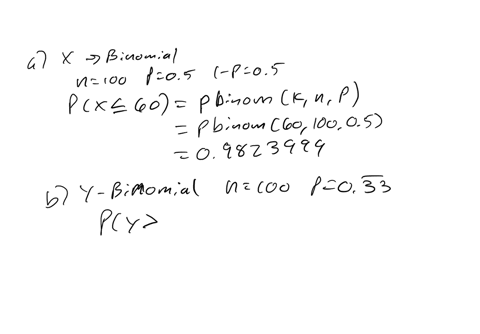 a) X → Binomial
n=100 P=0.5 1-P=0.5
P(X≤60) = pbinom(k, n, p)
= pbinom(60, 100, 0.5)
= 0.9823999
b) Y-Binomial n=100 P=0.3̅3̅
P(Y>